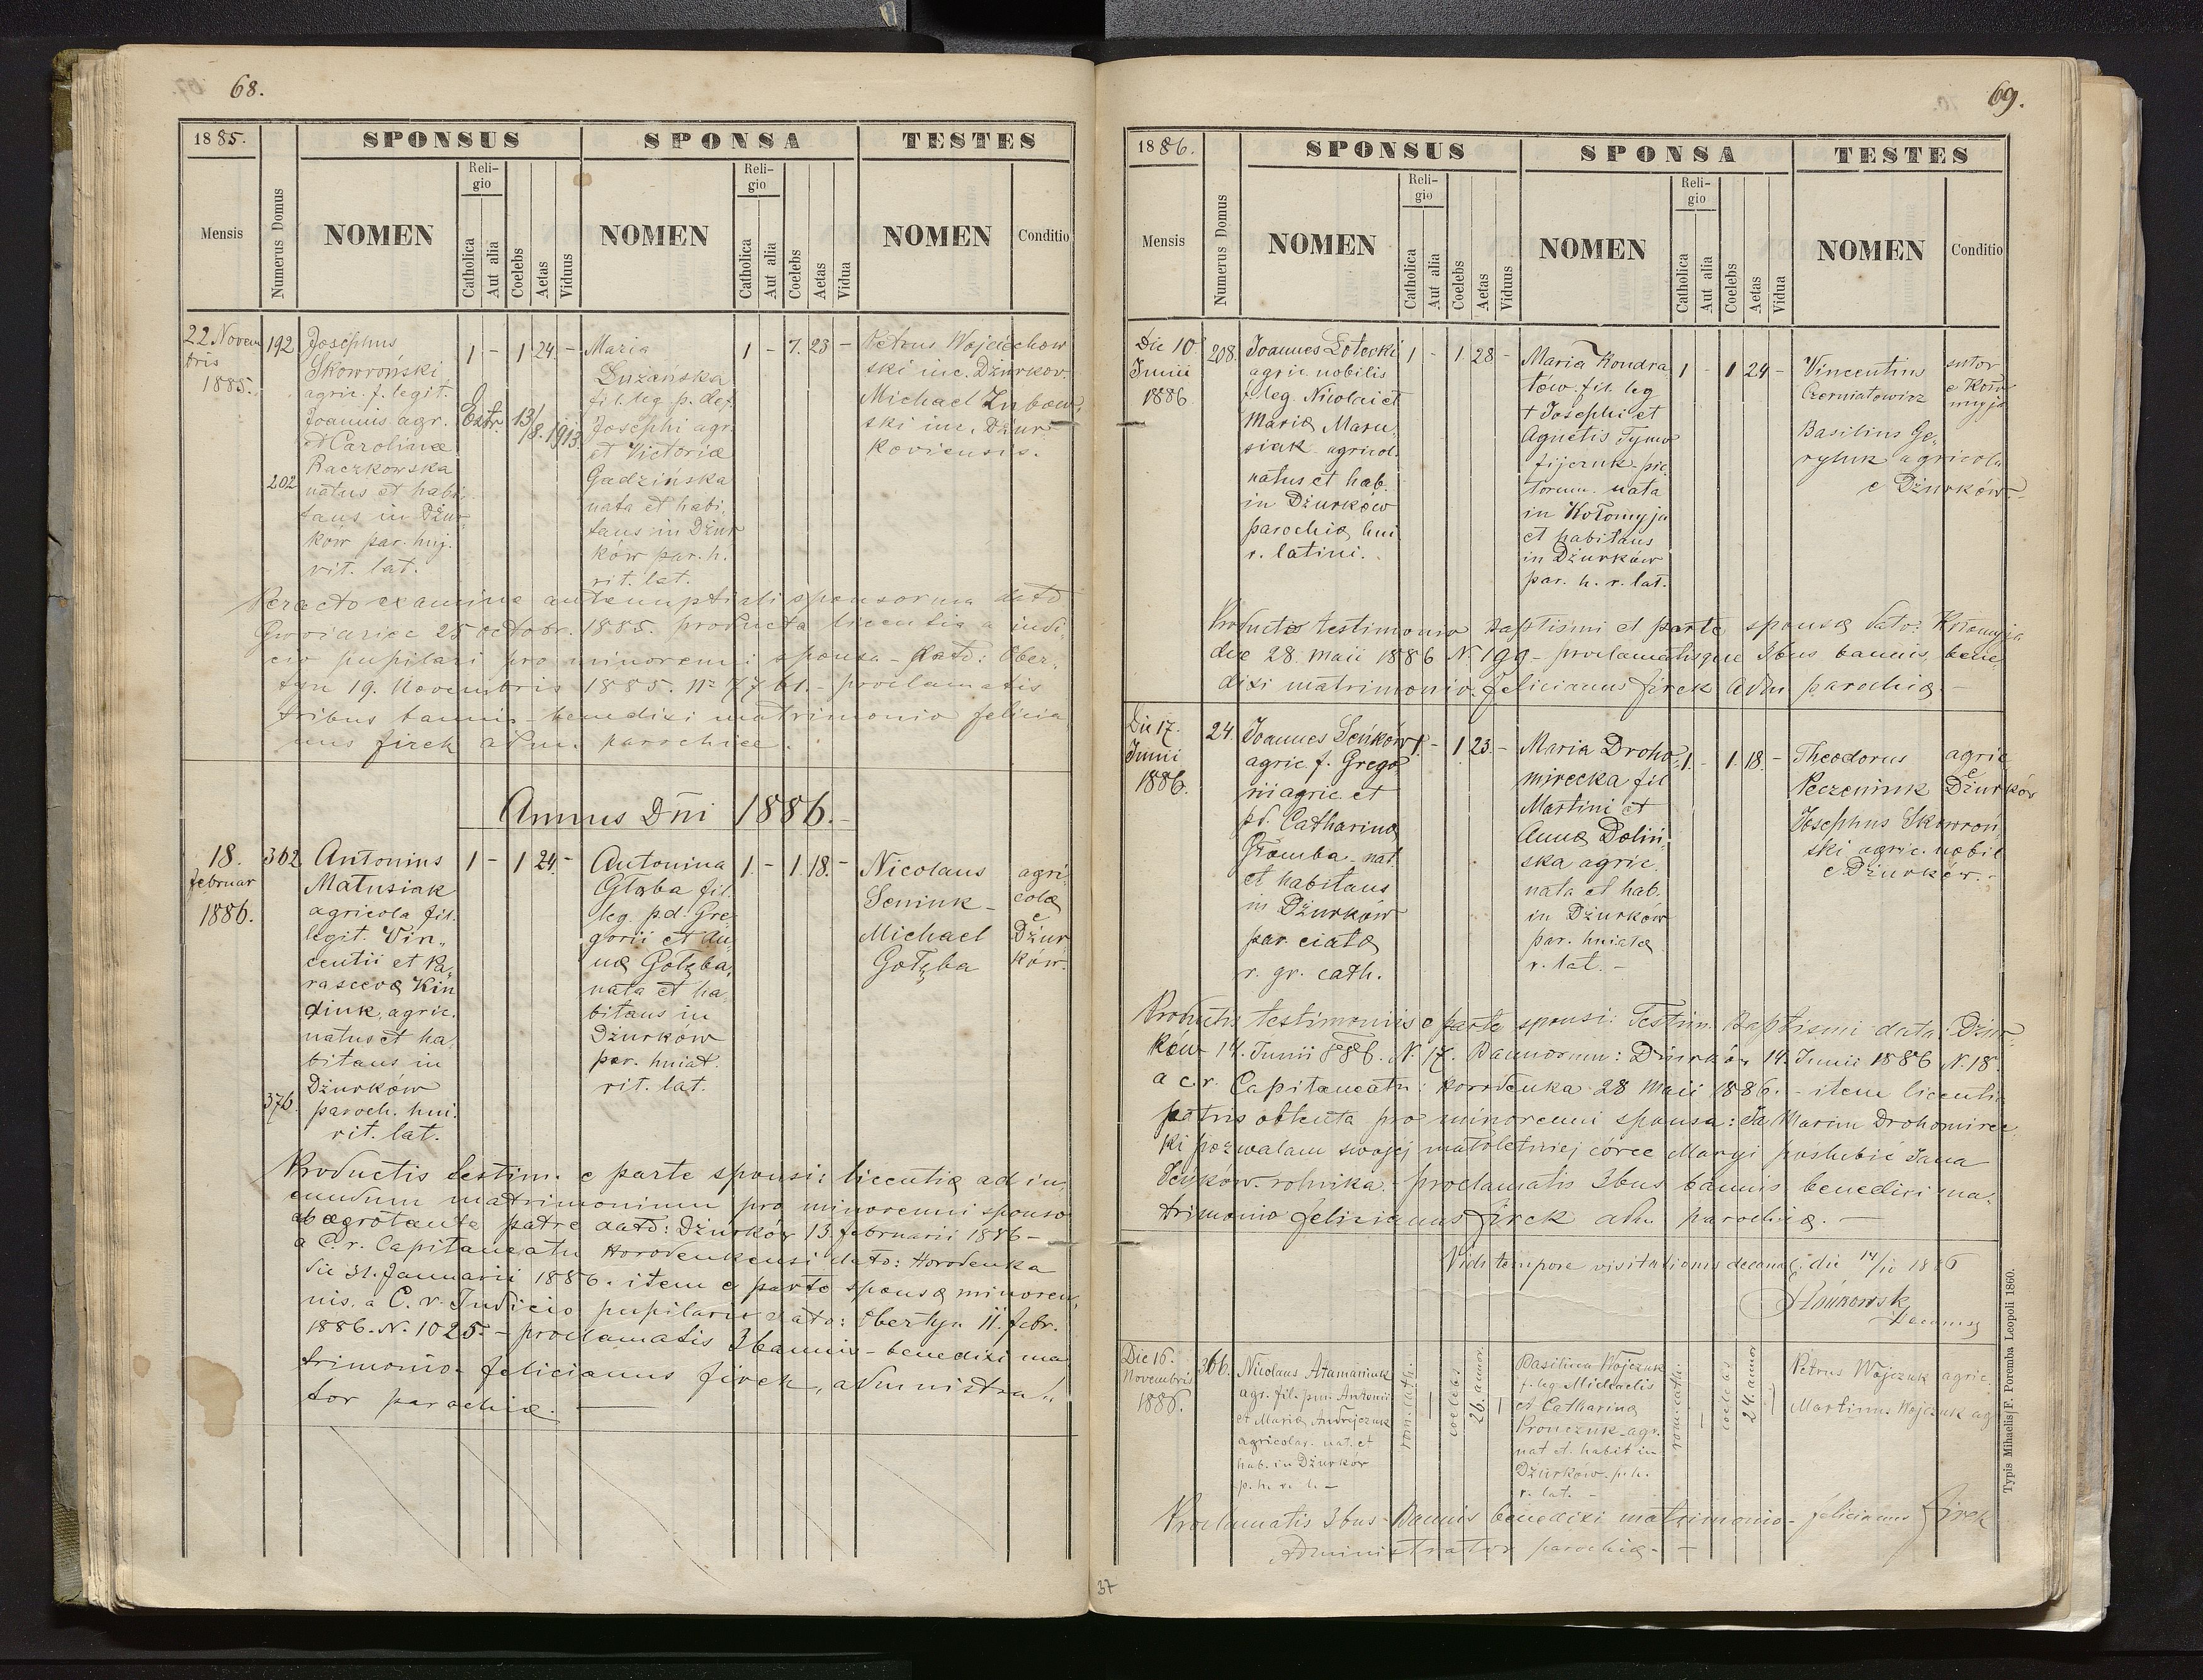 68.
1885.
SPONSUS
SPONSA
TESTES
Mensis
Numerus Domus
NOMEN
Reli-
gio
Catholica
Aut alia
Coelebs
Aetas
Viduus
NOMEN
Reli-
gio
Catholica
Aut alia
Coelebs
Aetas
Vidua
NOMEN
Conditio
22 Novem
bris
1885.
192
202
Josephus
Skowroński
agric. f. legit.
Joannis agr.
et Carolinæ
Raczkowska
natus et habi
tans in Dżur
ków par. huj.
rit. lat.
1 - 1 24. -
Extr. 13/8. 1913.
Maria
Łużańska
fil. leg. p. def.
Josephi agr.
et Victoriæ
Gadzińska
nata et habi
tans in Dżur
ków par. h.
rit. lat.
1 - 1. 23 -
Petrus Wojciechow
ski inc. Dżurkov.
Michael Zubow
ski inc. Dżur
koviensis.
Peracto examine antenuptiali sponsorum dato
Gwoździec 25 octobr. 1885. producta licentia a judi
cio pupilari pro minorenni sponsa - dato: Ober
tyn 19. Novembris 1885. Nr 7761. - proclamatis
tribus bannis - benedixi matrimonio felicia
nus Jirek adm. parochiæ.
Annus Dñi 1886.
18.
februar
1886.
362
376.
Antonius
Matusiak
agricola fil.
legit. Vin„
centii et Pa„
rascevæ Kin
diuk, agric.
natus et ha
bitans in
Dżurków
paroch. hui.
rit. lat.
1 - 1 24. -
Antonina
Głąba fil.
leg. pd. Gre
gorii et An
næ Gołęba,
nata et ha
bitans in
Dżurków
par. huiat.
rit. lat.
1. - 1. 18. -
Nicolaus
Seniuk -
Michael
Gołęba
agri
colæ
e
Dżur
ków.
Productis testim. e parte sponsi: licentia ad in
eundum matrimonium pro minorenni sponso
ab ægrotante patre dato: Dżurków 13. februarii 1886 -
a C. r. Capitaneatu Horodenkensi dato: Horodenka
die 31. Januarii 1886. item e parte sponsæ minoren
nis. a C. r. Judicio pupilari dato: Obertyn 11. febr.
1886. N. 1025. - proclamatis 3 bannis - benedixi ma
trimonio - felicianus Jirek, administra„
tor parochiæ.
69.
1886.
SPONSUS
SPONSA
TESTES
Mensis
Numerus Domus
NOMEN
Reli-
gio
Catholica
Aut alia
Coelebs
Aetas
Viduus
NOMEN
Reli-
gio
Catholica
Aut alia
Coelebs
Aetas
Vidua
NOMEN
Conditio
Die 10
Junii
1886
208.
Joannes Łotocki
agric. nobilis
f. leg. Nicolai et
Mariæ Maru
siak agricol.
natus et hab.
in Dżurków
parochiæ hui.
r. latini.
1 - 1 28 -
Maria Kondra
tów. fil. leg
+ Josephi et
Agnetis Tymo
fijczuk - pic
torum. nata
in Kołomyja
et habitans
in Dżurków
par. h. r. lat.
1 - 1 24 -
Vincentius
Czerniatowicz
Basilius Ge„
ryluk agricola
e Dżurków.
sutor
e Koło
myja
Producto testimonio baptismi et parte sponsæ dato: Kołomyja
die 28. Maii 1886 N. 199 - proclamatisque 3bus bannis, bene
dixi matrimonio. felicianus Jirek adm parochiæ. -
Die 17.
Junii
1886.
24.
Joannes Seńków
agric. f. Grego
rii agric. et
pd. Catharinæ
Głomba - nat.
et habitans
in Dżurków
par. eiatæ
r. gr. cath.
1. - 1 23. -
Maria Droho
mirecka fil
Martini et
Annæ Doliń
ska agric.
nata et hab.
in Dżurków
par. huiatæ
r. lat. -
1. - 1. 18. -
Theodorus
Peczeniuk
Josephus Skowroń
ski agric. nobil
e Dżurków. -
agric
e
Dżurków
Productis testimoniis e parte sponsi: Testim. Baptismi dato: Dżur
ków 14. Junii 1886. N. 17. Bannorum: Dżurków 14. Junii 1886 N. 18.
a c. r. Capitaneatu: Horodenka 28 Maii 1886. - item licentia
patris obtenta pro minorenni sponsa: Ja Marcin Drohomirec
ki pozwalam swojej małoletniej córce Maryi poślubić Jana
Seńków. rolnika. - proclamatis 3bus bannis benedixi ma„
trimonio felicianus Jirek adm parochiæ. -
Vidi tempore visitationis decanal: die 14/10 1886
Decanus
Die 16.
Novembris
1886.
366.
Nicolaus Atamaniuk
agr. fil. pm. Antonii
et Mariæ Andrejczuk
agricolar. nat. et
hab. in Dżurków
p. h. r. l. -
rom. cath.
-
coelebs.
26. annor.
-
Basilissa Wojczuk
f. leg. Michaelis
et Catharinæ
Prończuk - agr.
nat et habit in
Dżurków. p. h.
r. lat. -
rom. cath.
-
coelebs
24. annor
-
Petrus Wojczuk agric.
Martinus Wojczuk agr
Proclamatis 3bus - Bannis benedixi matrimonio - felicianus Jirek
Administrator parochiæ. -
37
Typis Mihaelis F. Poremba Leopoli 1860.